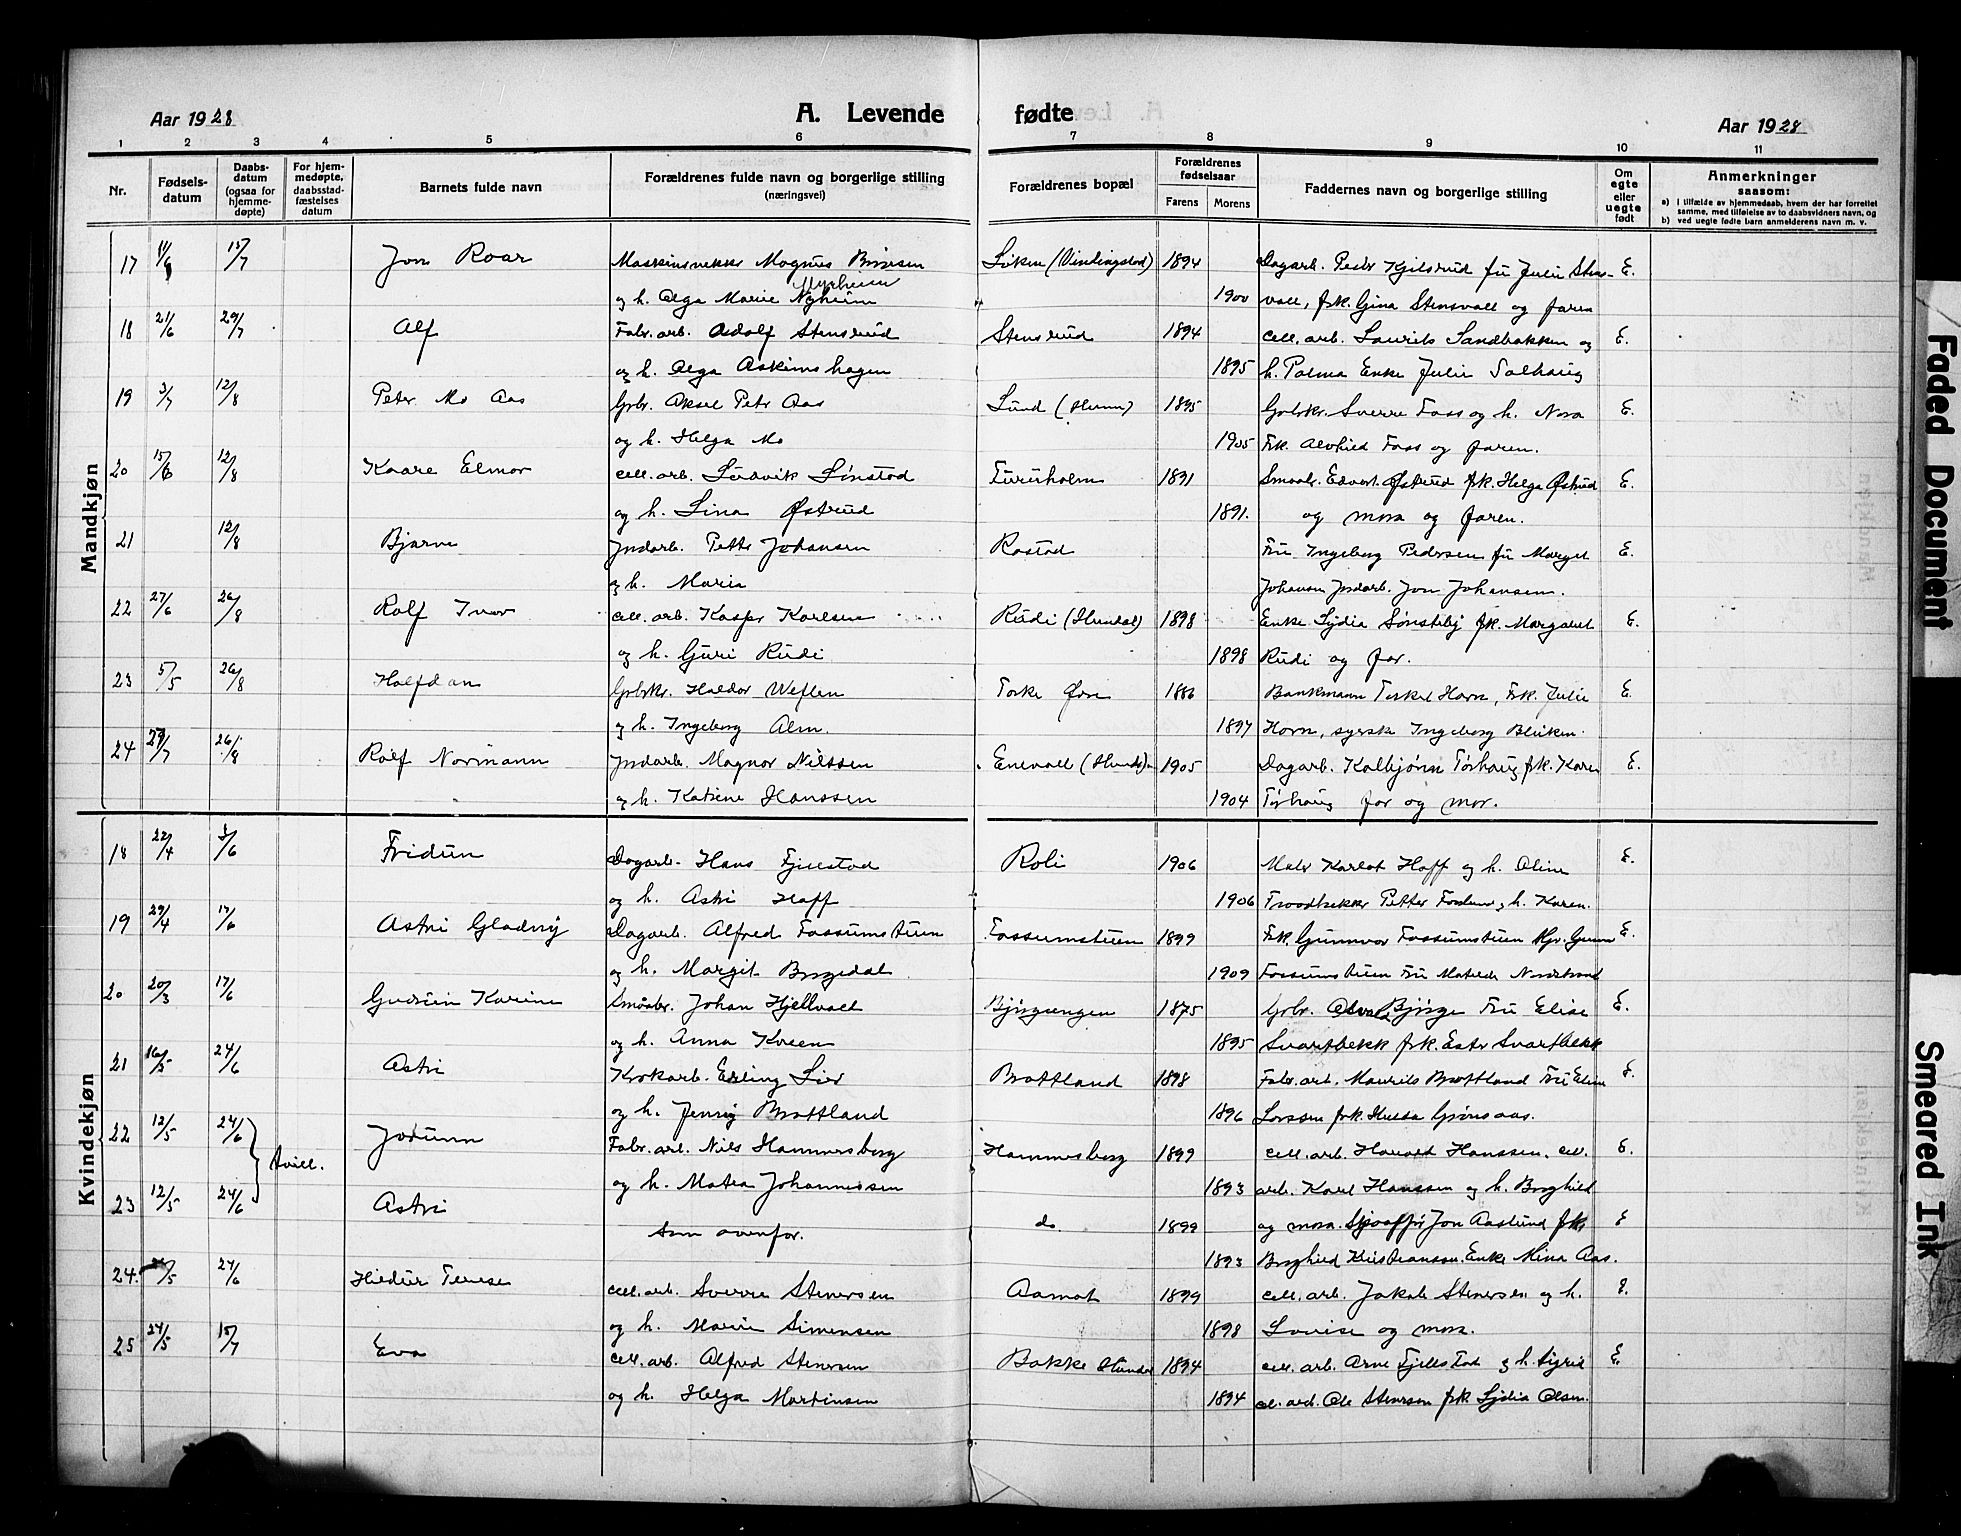 Aar 1928 A. Levende fødte Aar 1928
1 2 3 4 5 6 7 8 9 10 11
Nr. Fødselsdatum Daabsdatum (ogsaa for hjemmedøpte) For hjemmedøpte, daabsstadfæstelses datum Barnets fulde navn Forældrenes fulde navn og borgerlige stilling (næringsvei) Forældrenes bopæl Forældrenes fødselsaar Farens Morens Faddernes navn og borgerlige stilling Om egte eller uegte født Anmerkninger saasom: a) i tilfælde av hjemmedaab, hvem der har forrettet samme, med tilføielse av to daabsvidners navn, og b) ved uegte fødte barn anmelderens navn m. v.
Mandkjøn
17 11/6 15/7 Jon Roar Magnus 1894 Dagarb. Peder Kjilsrud fru Julie Stens- E.
og h. Olga Marie Nyheim Myrheim 1900 vall, frk. Gina Stensvall og faren
18 21/6 29/7 Alf Fabr. arb. Adolf Stensrud Stensrud 1894 cell. arb. Laurits Sandbakken og E.
og h. Olga Askimshagen 1895 h. Palma Enke Julie Solhaug
19 3/7 12/8 Peter Mo Aas Gbr. Aksel Petr Aas Lund (Hunn) 1895 Gbrkr. Sverre Foss og h. Nora E.
og h. Helga Mo 1905 Frk. Alvhild Foss og faren.
20 15/6 12/8 Kaare Elmar cell. arb. Ludvik Lønstad Furuholm 1891 Smaabr. Edvart Østrud frk. Helga Østrud E.
og h. Lina Østrud 1891. og mora og faren.
21 12/8 Bjarne Jndarb. Petter Johansen Rastad Fru Ingeborg Pedersen fru Marget E.
og h. Maria Johansen Jndarb. Jon Johansen.
22 27/6 26/8 Rolf Ivar cell. arb. Kaspr Karlsen Rudi (Hundal) 1898 Enke Lydia Sønsteby frk. Margaret E.
og h. Guri Rudi 1898 Rudi og far.
23 5/5 26/8 Halfdan Gbrkr. Haldor Weflen Torke Øvre 1886 Bankmann Torkel Horn, Frk. Julie E.
og h. Ingeborg Alm. 1897 Horn, sygesk Ingeborg
24 29/7 26/8 Rolf Normann Jndarb. Magnor Nilssen Enevall 1905 Dagarb. Kolbjørn Torhaug frk. Karen E.
og h. Katrine Hanssen 1904 Torhaug far og mor.
Kvindekjøn
18 22/4 3/6 Fridun Dagarb. Hans Fjellstad Roli 1906 Maler Karlot Hoff og h. Oline E.
og h. Astri Hoff 1906 Petter og h. Karen.
19 29/4 17/6 Astri Gladny Dagarb. Alfred Fossumstuen Fossumstuen 1899 Frk. Gunnvor Fossumstuen E.
og h. Margit Borgedal 1909 Fossumstuen Fru Matilde Nordstrand
20 20/3 17/6 Gudrun Karine Smaabr. Johan Hjellvall Bjørgeengen 1875 Gbr. Bjørge Fru Elise E.
og h. Anna Kveen 1895 Svartbekk frk. Ester Svartbekk
21 16/5 24/6 Astri Krokarb. Erling Lier Brattland 1898 Fabr. arb. Maurits Brattland Fru Elin E.
og h. Jenny Brattland 1896 Larssen frk. Hulda Grønsaas.
22 12/5 24/6 } tvill. Jorunn Fabr. arb. Nils Hammersberg Hammersberg 1899 cell. arb. Harald Hanssen, cell. E.
og h. Matea Johannessen 1893 arb. Karl Hanssen og h. Borghild
23 12/5 24/6 Astri som ovenfor. do 1899 og mora. Jon Aaslund frk E
1893 Borghild Kristiansen. Enke Mina Aas.
24. 24/5 24/6 Hildur Terese cell. arb. Sverre Stenersen Aamot 1899 cell. arb. Jakob Stenersen og h. E.
og h. Marie Simensen 1898 Louise og mora.
25 24/5 15/7 Eva cell. arb. Alfred Stenersen Bakke Hunder 1894 cell. arb. Arne Fjellstad og h. Sigrid E.
og h. Helga Martinsen 1894 cel. arb. Ole Stenersen frk. Lydia Olsen.
Faded Document
Smeared Ink